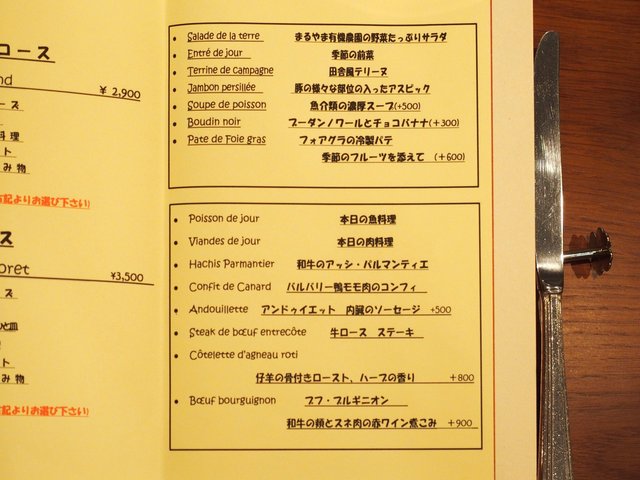 コース
nd
¥ 2,900
ーズ
料理
ト
み物
右記よりお選び下さい)
ス
oret
¥3,500
ーズ
ト
み物
右記よりお選び下さい)
• Salade de la terre まるやま有機農園の野菜たっぷりサラダ
• Entré de jour 季節の前菜
• Terrine de campagne 田舎風テリーヌ
• Jambon persillée 豚の様々な部位の入ったアスピック
• Soupe de poisson 魚介類の濃厚スープ(+500)
• Boudin noir ブーダンノワールとチョコバナナ(+300)
• Pate de Foie gras フォアグラの冷製パテ
季節のフルーツを添えて (+600)
• Poisson de jour 本日の魚料理
• Viandes de jour 本日の肉料理
• Hachis Parmantier 和牛のアッシ・パルマンティエ
• Confit de Canard バルバリー鴨モモ肉のコンフィ
• Andouillette アンドゥイエット 内臓のソーセージ +500
• Steak de bœuf entrecôte 牛ロース ステーキ
• Côtelette d'agneau roti
仔羊の骨付きロースト、ハーブの香り +800
• Bœuf bourguignon ブフ・ブルギニオン
和牛の頬とスネ肉の赤ワイン煮こみ +900